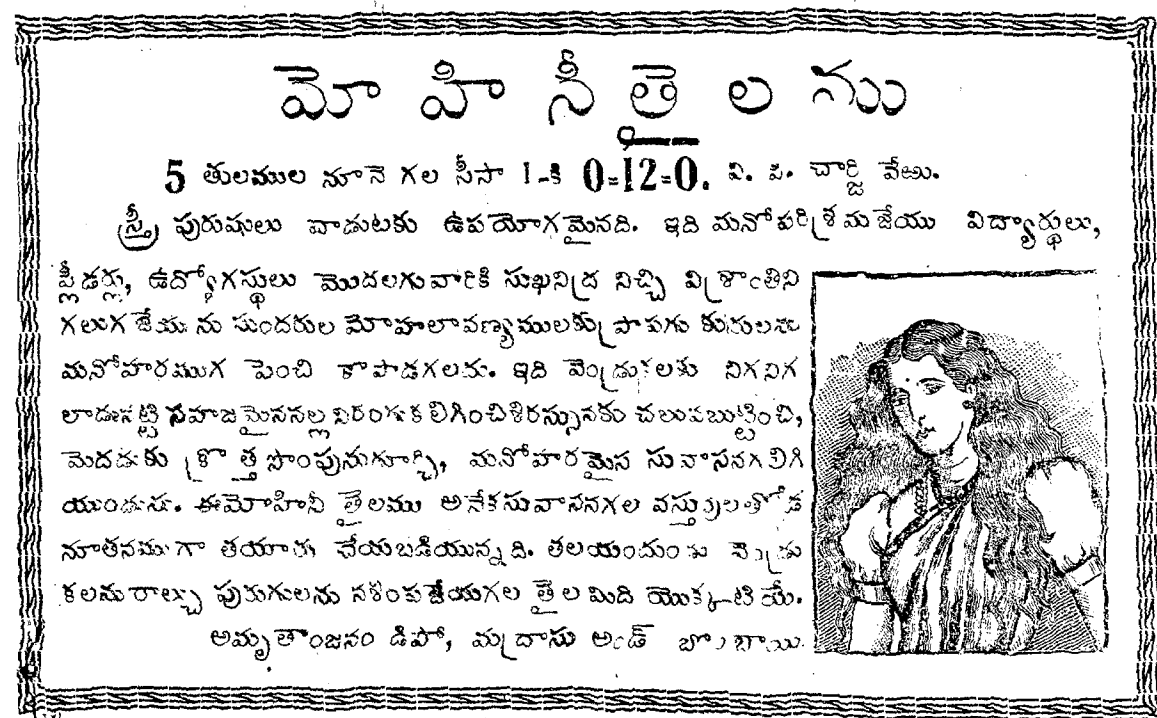 మోహినీతైలము
5 తులముల నూనె గల సీసా 1-కి 0=12=0. వి. పి. చార్జి వేఱు.
స్త్రీ పురుషులు వాడుటకు ఉపయోగమైనది. ఇది మనోపరిశ్రమజేయు విద్యార్థులు,
ప్లీడర్లు, ఉద్యోగస్థులు మొదలగువారికి సుఖనిద్ర నిచ్చి విశ్రాంతిని
గలుగ జేయును సుందరుల మోహలావణ్యములకు కురులను
మనోహరముగ పెంచి కాపాడగలదు. ఇది వెండ్రుకలకు నిగనిగ
లాడునట్టి సహజమైననల్లనిరంగుకలిగించిశిరస్సునకు చలువబుట్టించి,
మెదడుకు క్రొత్త సొంపునుగూర్చి, మనోహరమైన సువాసనగలిగి
యుండును. ఈమోహినీ తైలము అనేకసువాసనగల వస్తువులతోడ
నూతనముగా తయారు చేయబడియున్నది. తలయందుండు వెండ్రు
కలనురాల్చు పురుగులను నశింపజేయగల తైలమిది యొక్కటియే.
అమృతాంజనం డిపో, మద్రాసు అండ్ బొంబాయి.